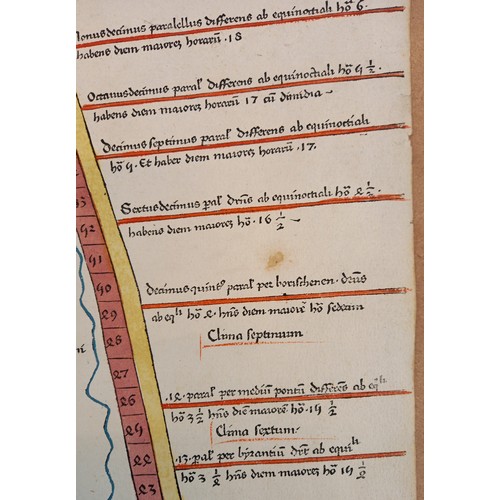 Nonusdecimus paralellus differens ab equinoctiali ho᷑ 6.
habens diem maiorez horarū .18
Octauusdecimus paral' differens ab equinoctiali ho᷑ 5 1/2.
habens diem maiorez horarū 17 cū dimidia
Decimus septimus paral' differens ab equinoctiali
ho᷑ 5. Et habet diem maiorez horarū .17.
Sextusdecimus pal' drn̄s ab equinoctiali ho᷑ 4 1/2.
habens diem maiorez ho᷑ 16 1/2
Decimus quint᷒ paral' per borischenen. drn̄s
ab eqⁱˡ ho᷑ 4. hn̄s diem maiorē ho᷑ sedecim
Clima septimum
.14. paral' per mediū pontū differēs ab eqⁱˡ
ho᷑ 3 1/2 hn̄s diē maiorē ho᷑ .15 1/2
Clima sextum.
.13. pal' per byzantiū drn̄s ab equiˡⁱ
ho᷑ 3 1/4 hn̄s diem maiorez ho᷑ 15 1/4
43
42
51
50
49
48
47
46
45
44
43